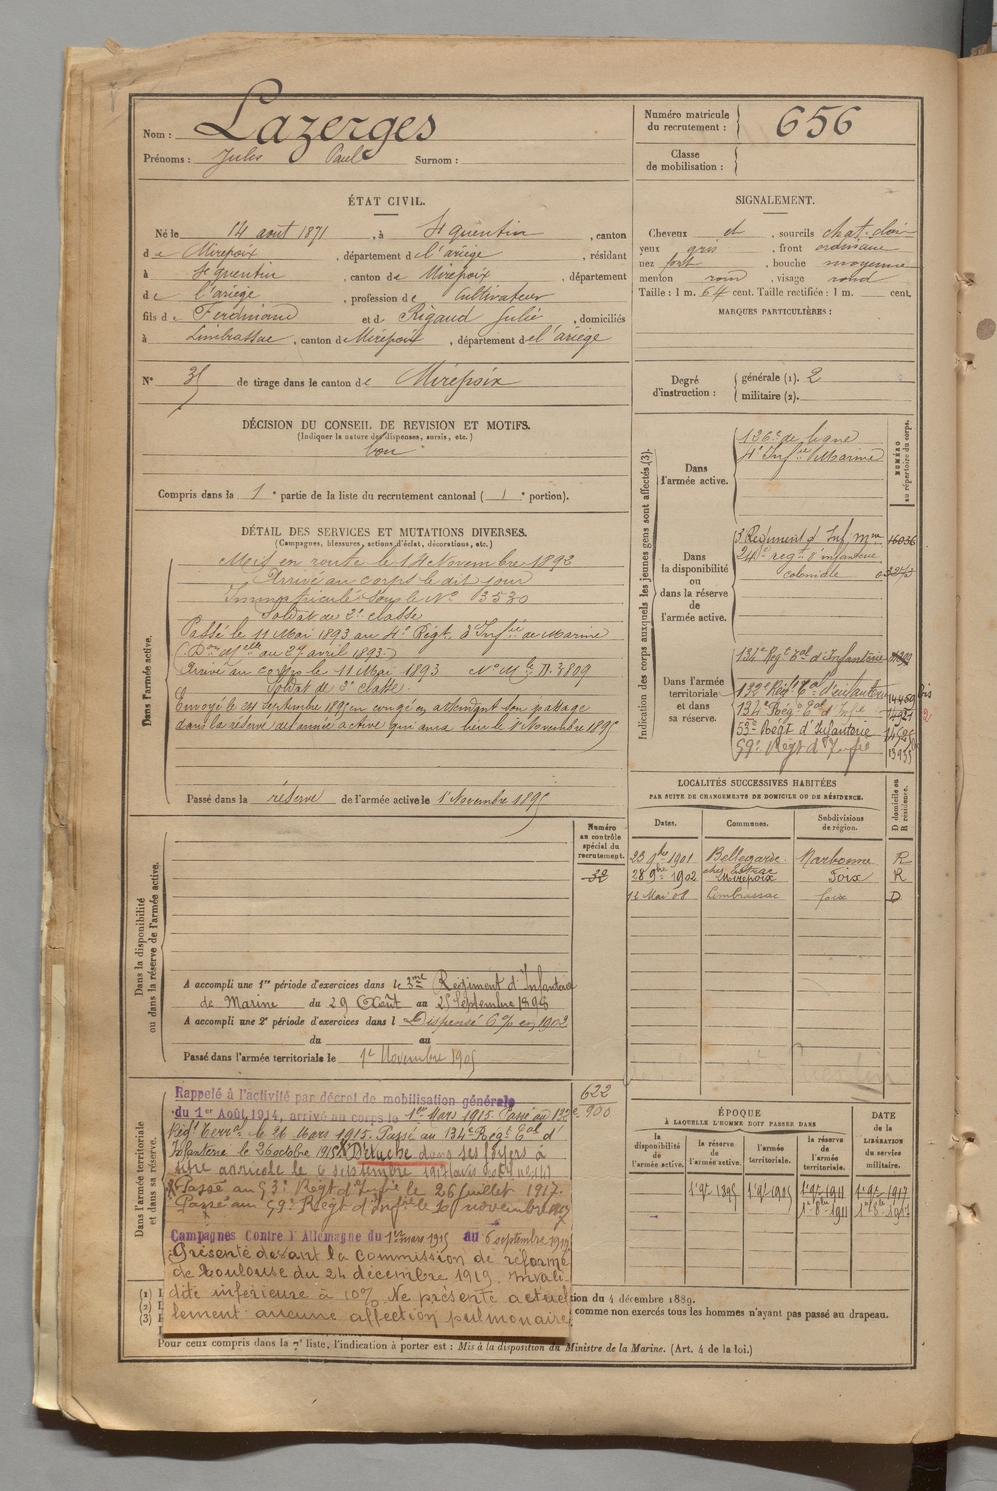 Nom : Lazerges
Prénoms : Jules Paul Surnom :
Numéro matricule du recrutement : 656
Classe de mobilisation :
ÉTAT CIVIL.
Né le 14 août 1871, à St quentin, canton
de Mirepoix, département de l'ariège, résidant
à St quentin, canton de Mirepoix, département
de l'ariège, profession de Cultivateur
fils de Ferdinand et de Rigaud Julie, domiciliés
à Limbrassac, canton de Mirepoix, département de l'ariège
SIGNALEMENT.
Cheveux et, sourcils chat. clair
yeux gris, front ordinaire
nez fort, bouche moyenne
menton rond, visage rond
Taille : 1 m. 64 cent. Taille rectifiée : 1 m. cent.
MARQUES PARTICULIÈRES :
N° 35 de tirage dans le canton de Mirepoix
Degré d'instruction : générale (1). 2
militaire (2).
DÉCISION DU CONSEIL DE REVISION ET MOTIFS.
(Indiquer la nature des dispenses, sursis, etc.)
bon
Compris dans la 1e partie de la liste du recrutement cantonal ( 1e portion).
DÉTAIL DES SERVICES ET MUTATIONS DIVERSES.
(Campagnes, blessures, actions d'éclat, décorations, etc.)
Dans l'armée active.
Mis en route le 14 Novembre 1892
Arrivé au corps le dit jour
Immatriculé sous le No 3530
Soldat de 2e classe
Passé le 11 Mai 1893 au 4e Régt d'Infie de Marine
(Don Melle du 27 avril 1893.)
Arrivé au corps le 11 Mai 1893 No Mle D. 3809
Soldat de 2e classe.
Envoyé le 24 septembre 1895 en congé en attendant son passage
dans la réserve de l'armée active qui aura lieu le 1er Novembre 1895
Passé dans la réserve de l'armée active le 1er Novembre 1895
Indication des corps auxquels les jeunes gens sont affectés (3).
NUMÉRO au répertoire du corps.
Dans l'armée active.
136e de ligne
4e Infie Marine
Dans la disponibilité ou dans la réserve de l'armée active.
3 Régiment d'Inf Mne 16036
24e regt d'infanterie
coloniale
Dans l'armée territoriale et dans sa réserve.
134e Regt Tal d'Infanterie
132e Regt Tal d'infanterie 14450
134e Régt Tal d'Infie 14921
53me Régt d'Infanterie
59e Régt d'Infie 13955
LOCALITÉS SUCCESSIVES HABITÉES
PAR SUITE DE CHANGEMENTS DE DOMICILE OU DE RÉSIDENCE.
Dates. Communes. Subdivisions de région. D domicile ou R résidence.
23 9bre 1901 Bellegarde Narbonne R
28 9bre 1902 Mirepoix Foix R
12 Mai 08 Limbrassac foix D
Numéro au contrôle spécial du recrutement.
32
Dans la disponibilité ou dans la réserve de l'armée active.
A accompli une 1re période d'exercices dans le 3me Régiment d'Infanterie
de Marine du 29 Août au 25 Septembre 1898
A accompli une 2e période d'exercices dans l Dispensé 6% en 1902
du au
Passé dans l'armée territoriale le 1er Novembre 1905
Dans l'armée territoriale et dans sa réserve.
622
900
Rappelé à l'activité par décret de mobilisation générale
du 1er Août 1914, arrivé au corps le 1er Mars 1915. Passé au 132e
Régt Terral le 21 Mars 1915. Passé au 134e Régt Tal d'
Infanterie le 26 octobre 1915. Détaché dans ses foyers à
titre agricole le 6 septembre 1917
Passé au 53e Régt d'Infie le 26 Juillet 1917.
Passé au 59e Régt d'Infie le 20 novembre 1917
Campagnes Contre l'Allemagne du 1er mars 1915 au 6 septembre 1917
Présenté devant la Commission de réforme
de Toulouse du 24 décembre 1919. Invali-
dité inférieure à 10% Ne présente actuel
lement aucune affection pulmonaire
ÉPOQUE
À LAQUELLE L'HOMME DOIT PASSER DANS
la disponibilité de l'armée active.
la réserve de l'armée active.
l'armée territoriale.
la réserve de l'armée territoriale.
DATE DE LA LIBÉRATION DU service militaire.
1er 9bre 1895 1er 9bre 1905 1er 9bre 1911 1er 9bre 1917
1er 8bre 1911 1er 8bre 1917
(1)
(2)
(3)
tion du 4 décembre 1889.
comme non exercés tous les hommes n'ayant pas passé au drapeau.
Pour ceux compris dans la 7e liste, l'indication à porter est : Mis à la disposition du Ministre de la Marine. (Art. 4 de la loi.)